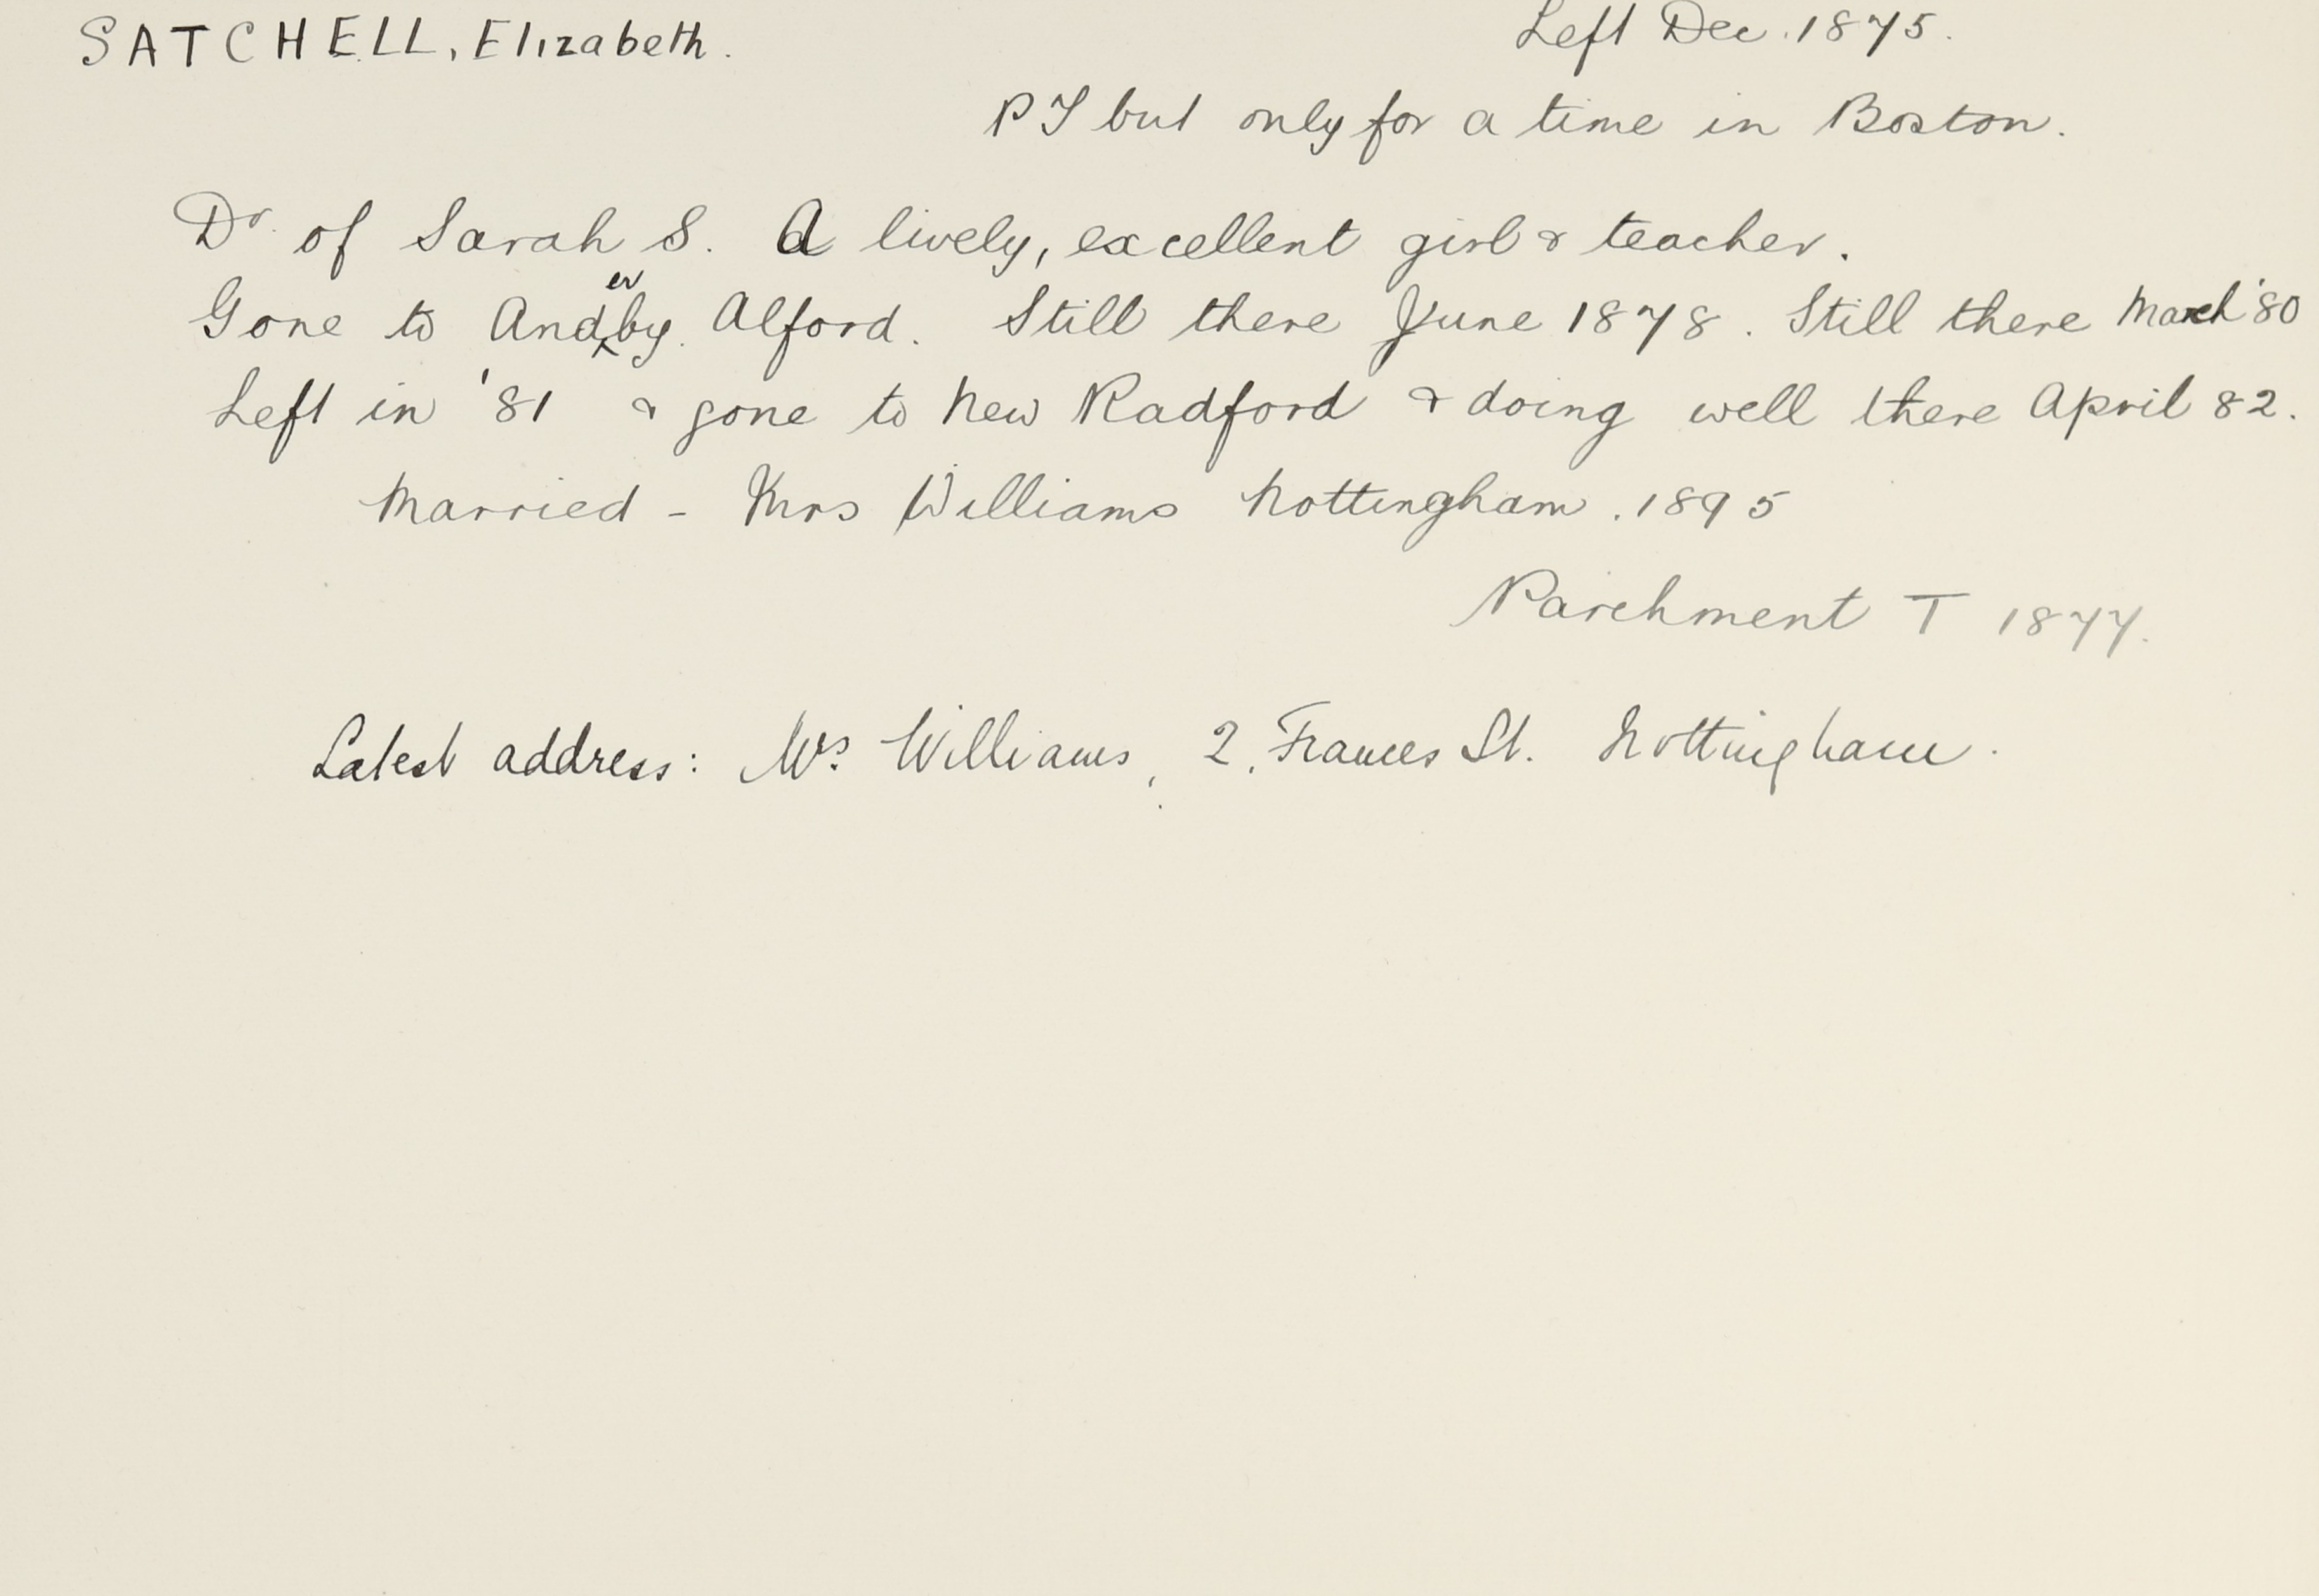 SATCHELL, Elizabeth.
Left Dec. 1875.
PT but only for a time in Boston.
Dr. of Sarah S. A lively, excellent girl & teacher.
Gone to Anderby. Alford. Still there June 1878. Still there March '80
Left in '81 & gone to New Radford & doing well there April 82.
Married - Mrs Williams Nottingham. 1895
Parchment T 1877.
Latest address: Mrs. Williams, 2, Frances St. Nottingham.